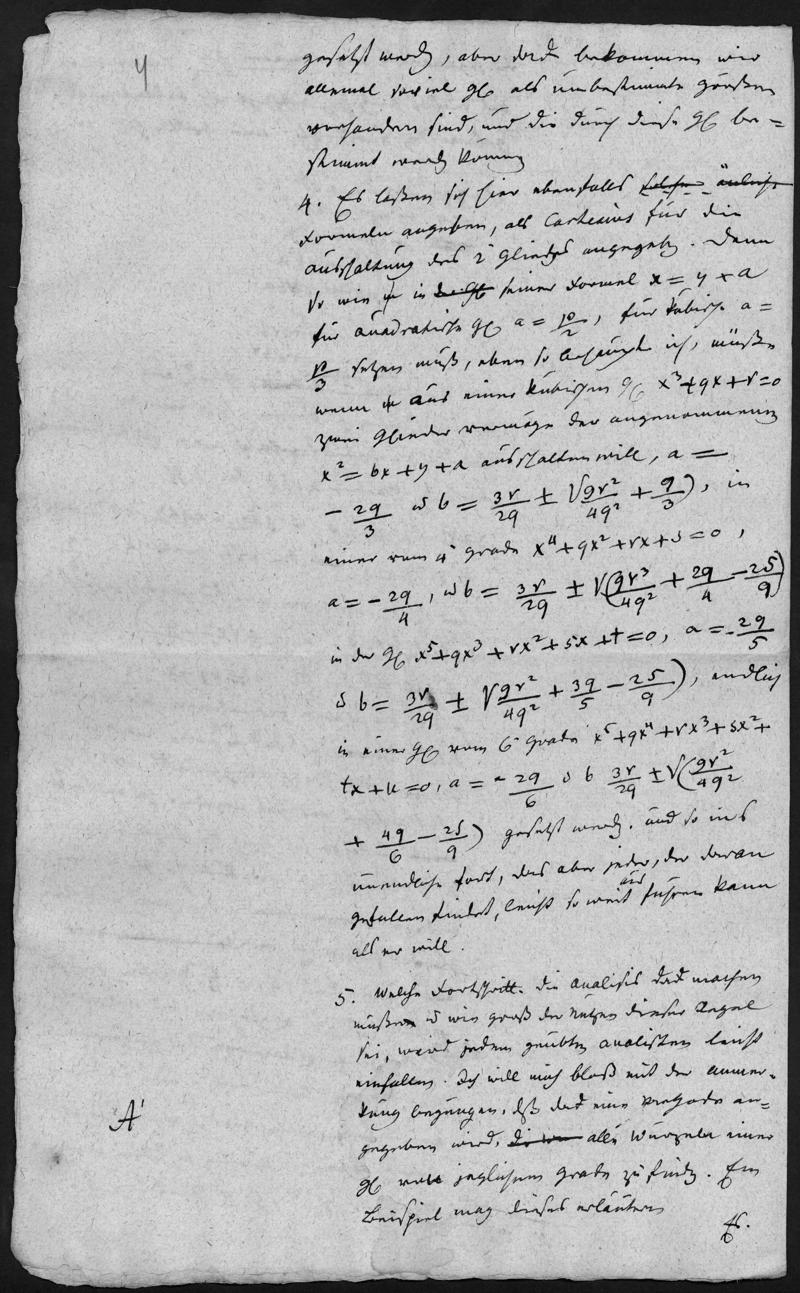 4
gesetzt werd, aber dad. bekommen wir
allemal soviel gl als unbestimmte größen
vorhanden sind, und die durch diese gl be=
stimmt werd können
4. Es laßen sich hier ebenfalls solche änliche
Formeln angeben, als Cartesius für die
ausschaltung des 2 Gliedes angegeb. Denn
so wie in seiner Formel x = y + a
für quadratische gl a = p/2, für kubische a =
p/3 setzen muß, eben so behaupte ich, müße
wenn aus einer kubischen gl x³+qx+r=0
zwei Glieder vermöge der angenommenen
x² = bx + y + a ausschalten will, a =
- 2q/3 b = 3r/2q ± √(9r²/4q² + q/3), in
einer vom 4 grade x⁴+qx²+rx+s=0,
a = - 2q/4, b = 3r/2q ± √(9r³/4q² + 2q/4 - 2s/q)
in der gl x⁵+qx³+rx²+sx+t=0, a = - 2q/5
b = 3r/2q ± √(9r²/4q² + 3q/5 - 2s/q), endlich
in einer gl vom 6 grade x⁶+qx⁴+rx³+sx²+
tx+u=0, a = - 2q/6 b 3r/2q ± √(9r²/4q²
+ 4q/6 - 2s/q) gesetzt werd. und so ins
unendliche fort, das aber jeder, der daran
gefallen findet, leicht so weit ausführen kann
als er will.
5. Welche Fortschritt. die analisis dad machen
müßen wie groß der nutzen dieser Regel
sei, wird jedem geübten analisten leicht
einfallen. Ich will mich bloß mit der anmer-
kung begnügen, dß dad eine Methode an=
gegeben wird, alle Wurzeln einer
gl von jeglichem grade zu find. Ein
Beispiel mag dieses erläutern
A'
Es.